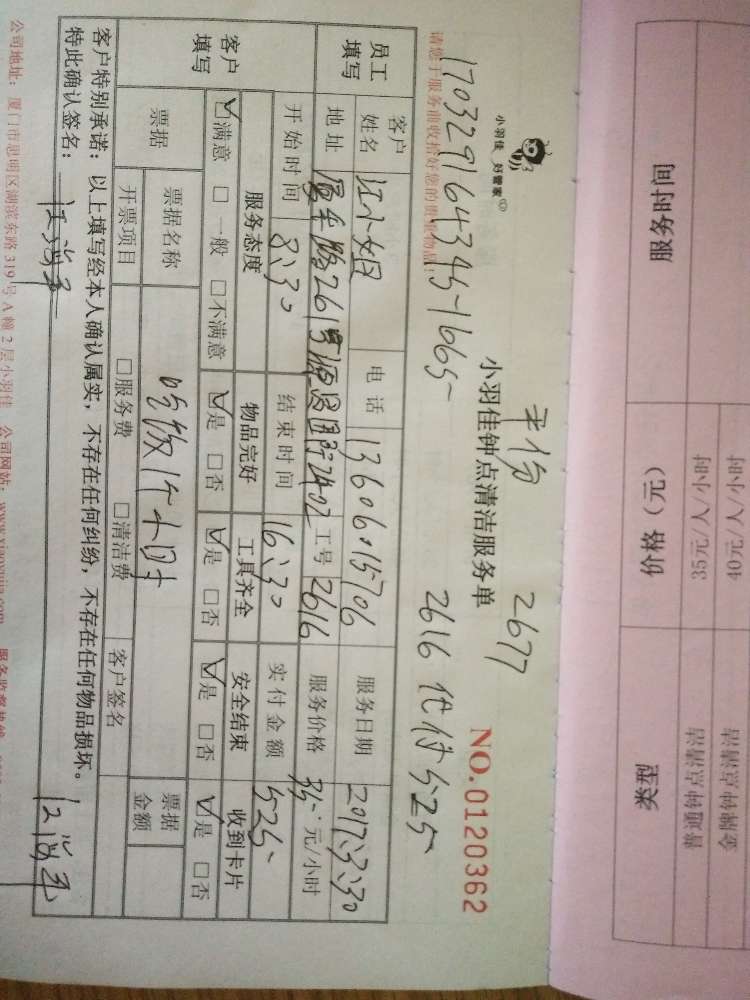 服务时间 价格（元） 类型
35元/人/小时 普通钟点清洁
40元/人/小时 金牌钟点清洁
小羽佳 好管家
小羽佳钟点清洁服务单 2677 NO.0120362
请您于服务前收拾好您的贵重物品！
2616 代付525
员工填写 客户姓名 江小姐 电话 13606015706 服务日期 2017.3.30
地址 工号 2616 服务价格 35 元/小时
开始时间 8:30 结束时间 16:30 实付金额 525
客户填写 服务态度 物品完好 工具齐全 安全结束 收到卡片
☑满意 □一般 □不满意 ☑是 □否 ☑是 □否 ☑是 □否 ☑是 □否
票据 票据名称 票据金额
开票项目 □服务费 □清洁费 客户签名
客户特别承诺：以上填写经本人确认属实，不存在任何纠纷，不存在任何物品损坏。
特此确认签名：
公司地址：厦门市思明区湖滨东路319号A幢2层小羽佳 公司网站：www.xiaoyujia.com